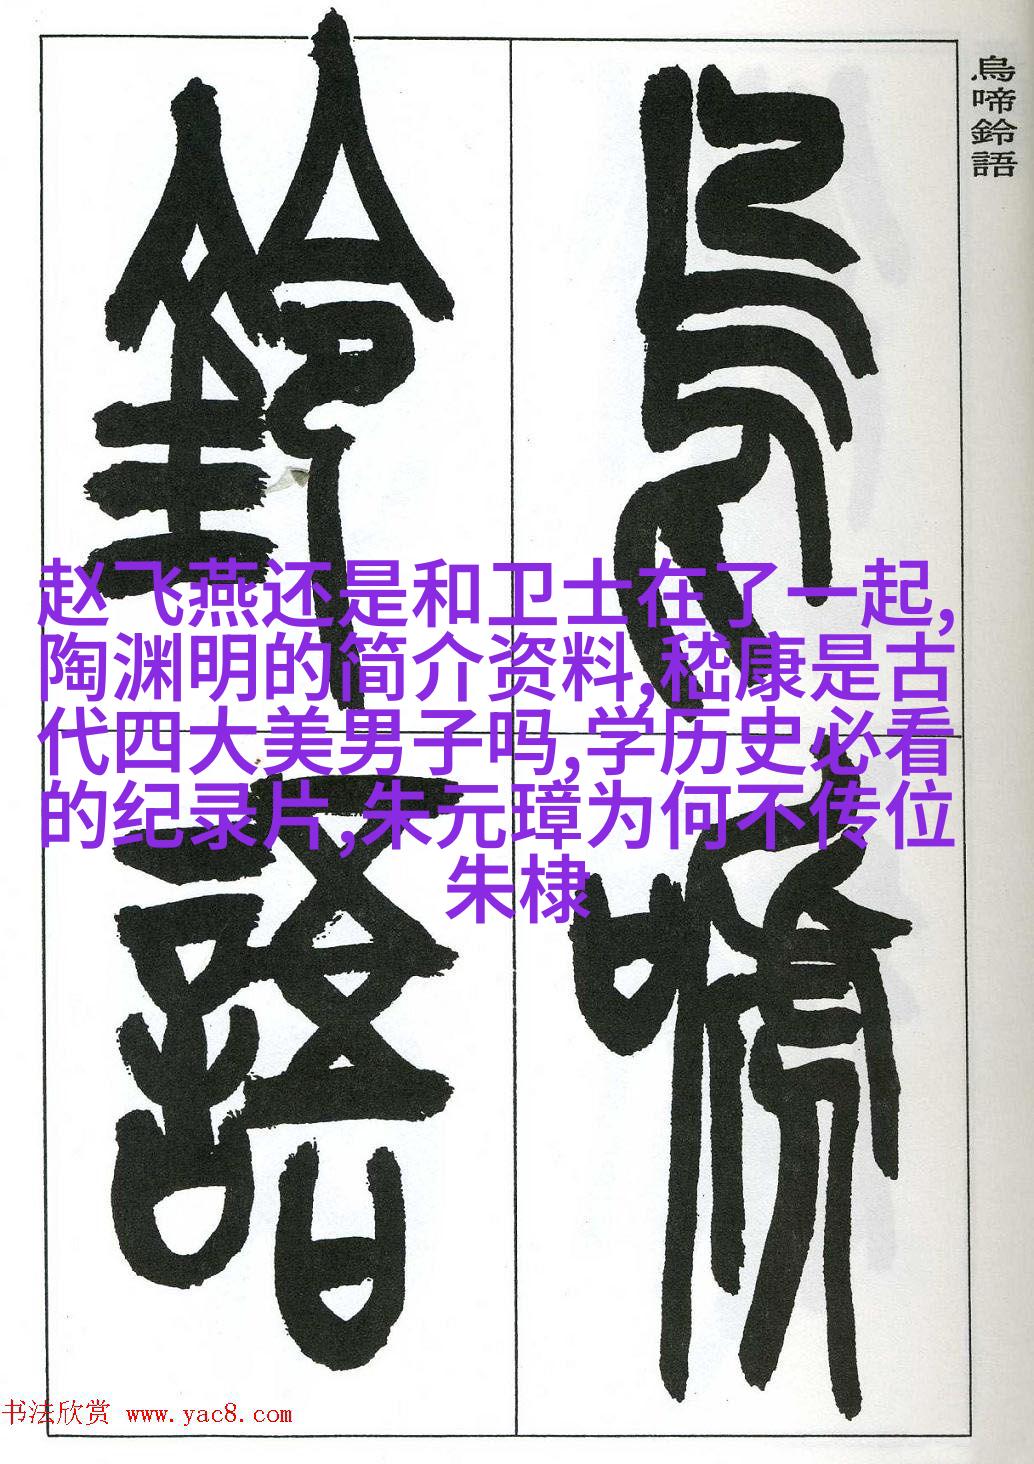 烏啼鈴語
烏啼
鈴語
赵飞燕还是和卫士在了一起,
陶渊明的简介资料,嵇康是古
代四大美男子吗,学历史必看
的纪录片,朱元璋为何不传位
朱棣
书法欣赏 www.yac8.com